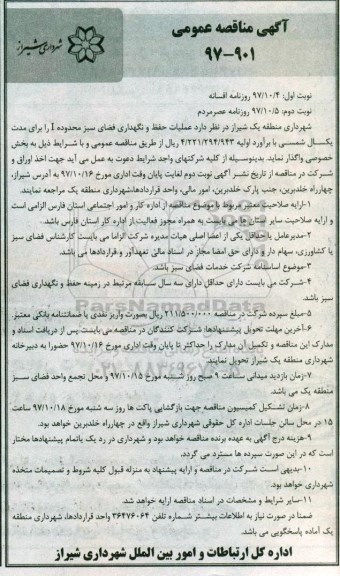 آگهی مناقصه عمومی
۹۷-۹۰۱
شهرداری شیراز
نوبت اول: ۹۷/۱۰/۴ روزنامه افسانه
نوبت دوم: ۹۷/۱۰/۵ روزنامه عصرمردم
شهرداری منطقه یک شیراز در نظر دارد عملیات حفظ و نگهداری فضای سبز محدوده I را برای مدت
یکسال شمسی با برآورد اولیه ۴/۲۲۱/۲۹۴/۹۴۳ ریال از طریق مناقصه عمومی و با شرایط ذیل به بخش
خصوصی واگذار نماید. بدینوسیله از کلیه شرکتهای واجد شرایط دعوت به عمل می آید جهت اخذ اوراق و
شرکت در مناقصه از تاریخ نشر آگهی نوبت دوم لغایت پایان وقت اداری مورخ ۹۷/۱۰/۱۶ به آدرس شیراز،
چهارراه خلدبرین، جنب پارک خلدبرین، امور مالی، واحد قراردادها،شهرداری منطقه یک مراجعه نمایند.
۱-ارایه صلاحیت معتبر مربوط با موضوع مناقصه از اداره کار و امور اجتماعی استان فارس الزامی است
و ارایه صلاحیت سایر استان ها می بایست به همراه مجوز فعالیت از اداره کار استان فارس باشد.
۲-مدیرعامل یا حداقل یکی از اعضا اصلی هیات مدیره شرکت الزاما می بایست کارشناس فضای سبز
یا کشاورزی، سهام دار و دارای حق امضا مجاز در اسناد مالی تعهدآور و قراردادها می باشد.
۳-موضوع اساسنامه شرکت خدمات فضای سبز باشد.
۴-شرکت می بایست دارای حداقل دارای سه سال سابقه مرتبط در زمینه حفظ و نگهداری فضای
سبز باشد.
۵-مبلغ سپرده شرکت در مناقصه ۲۱۱/۵۰۰/۰۰۰ ریال بصورت واریز نقدی یا ضمانتنامه بانکی معتبر
۶-آخرین مهلت تحویل پیشنهادها: شرکت کنندگان در مناقصه می بایست پس از دریافت اسناد و
مدارک این مناقصه و تکمیل آن مدارک را حداکثر تا پایان وقت اداری مورخ ۹۷/۱۰/۱۶ حضورا به دبیرخانه
شهرداری منطقه یک شیراز تحویل نمایند.
۷-زمان بازدید میدانی ساعت ۹ صبح روز شنبه مورخ ۹۷/۱۰/۱۵ و محل تجمع واحد فضای سبز
منطقه یک می باشد.
۸-زمان تشکیل کمیسیون مناقصه جهت بازگشایی پاکت ها روز سه شنبه مورخ ۹۷/۱۰/۱۸ ساعت
۱۵ در محل سالن جلسات اداره کل حقوقی شهرداری شیراز واقع در چهارراه خلدبرین خواهد بود.
۹-هزینه درج آگهی به عهده برنده مناقصه خواهد بود و شهرداری در رد یک یاتمام پیشنهادها مختار
است که در این صورت سپرده ها مسترد می گردد.
۱۰-بدیهی است شرکت در مناقصه و ارایه پیشنهاد به منزله قبول کلیه شروط و تصمیمات متخذه
شهرداری خواهد بود.
۱۱-سایر شرایط و مشخصات در اسناد مناقصه ارایه خواهد شد.
ضمنا در صورت نیاز به اطلاعات بیشتر شماره تلفن ۳۶۴۷۶۰۶۴ واحد قراردادها، شهرداری منطقه
یک آماده پاسخگویی می باشد.
اداره کل ارتباطات و امور بین الملل شهرداری شیراز